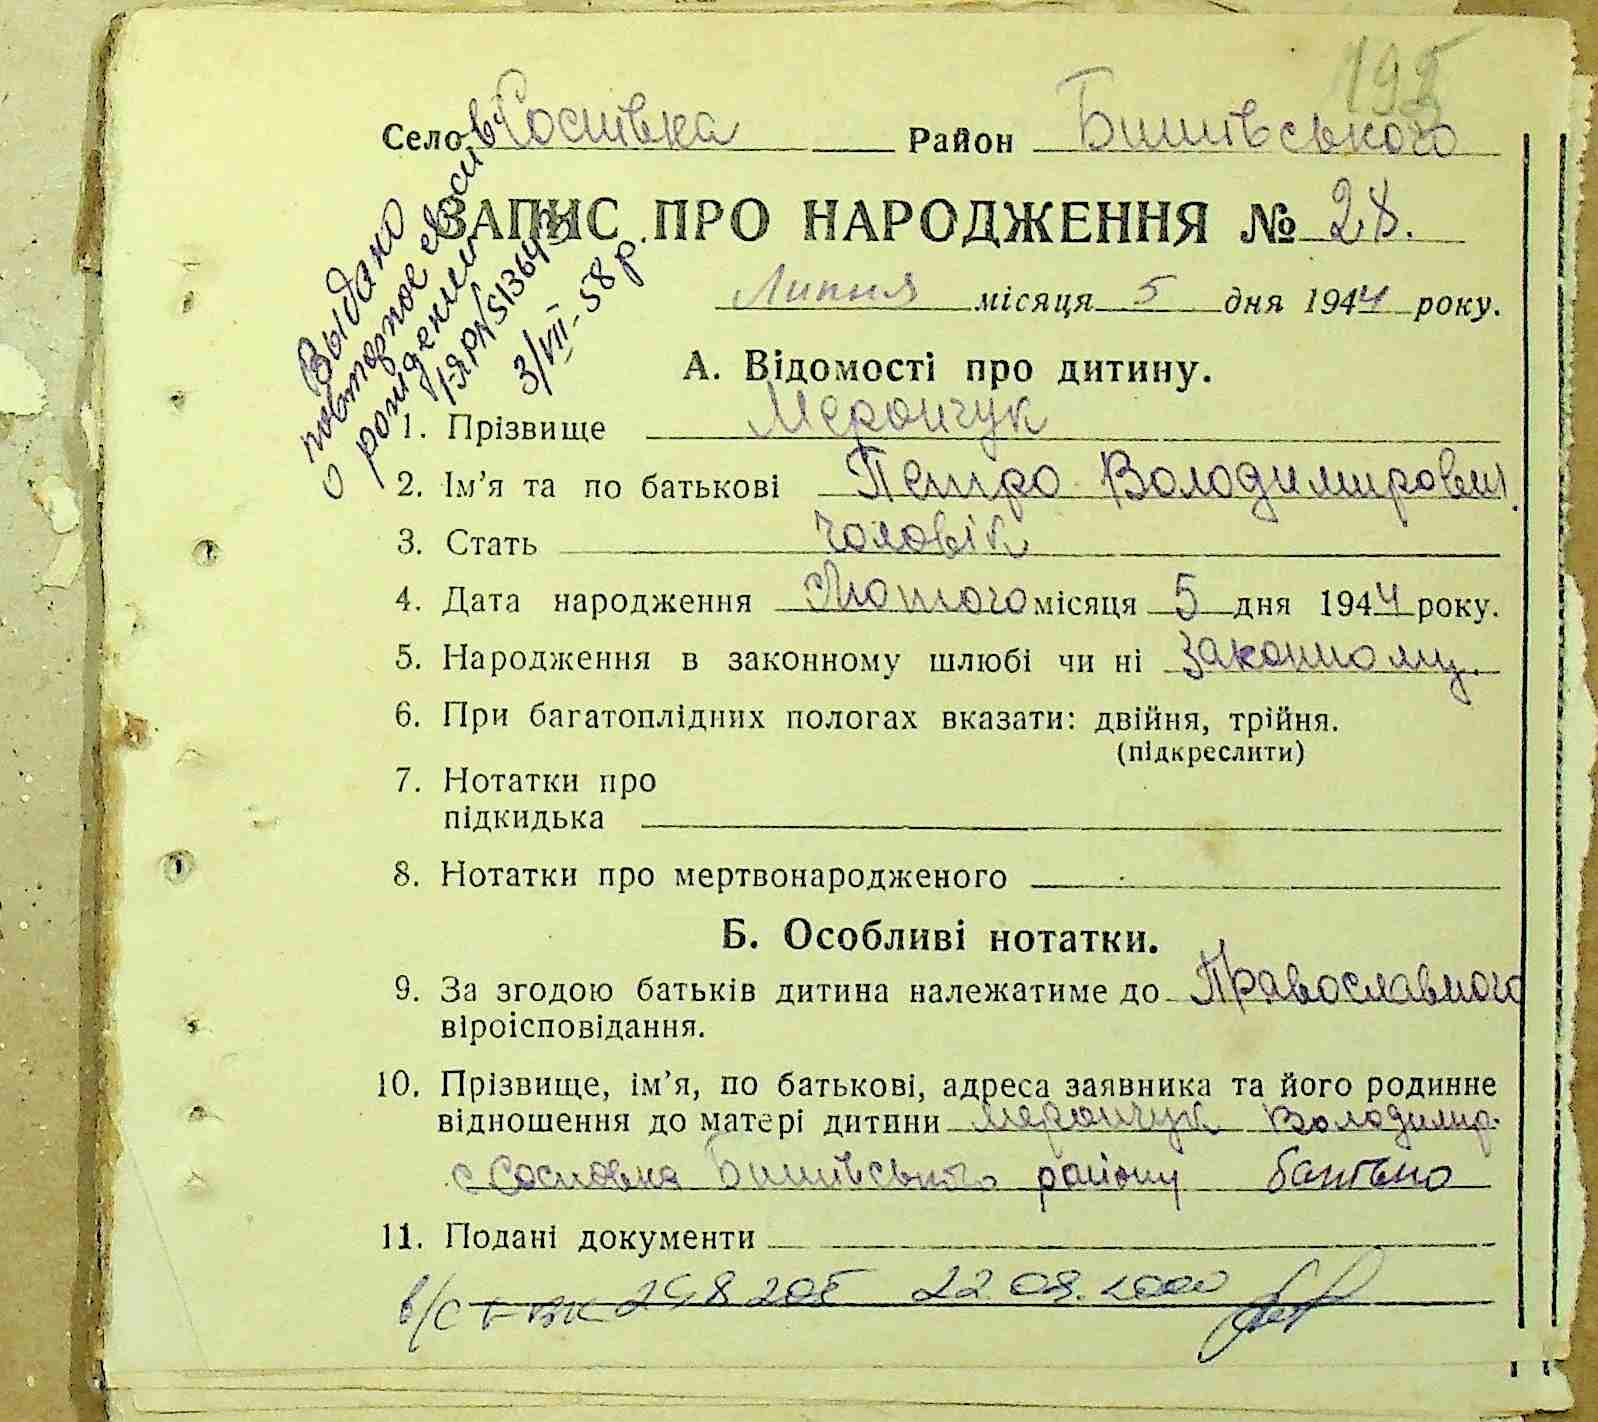 Село Соснівка Район Бишівського
ЗАПИС ПРО НАРОДЖЕННЯ № 28.
Липня місяця 5 дня 1944 року.
Выдано
повторное свосив
о рождении
1-ЯР№513643
3/VII-58 р.
А. Відомості про дитину.
1. Прізвище Мерончук
2. Ім'я та по батькові Петро Володимирович
3. Стать чоловік
4. Дата народження Лютого місяця 5 дня 1944 року.
5. Народження в законному шлюбі чи ні законному.
6. При багатоплідних пологах вказати: двійня, трійня.
(підкреслити)
7. Нотатки про
підкидька
8. Нотатки про мертвонародженого
Б. Особливі нотатки.
9. За згодою батьків дитина належатиме до Православного
віроісповідання.
10. Прізвище, ім'я, по батькові, адреса заявника та його родинне
відношення до матері дитини Мерончук Володимир.
с Сосновка Бишівського району батько
11. Подані документи
22.08.2000